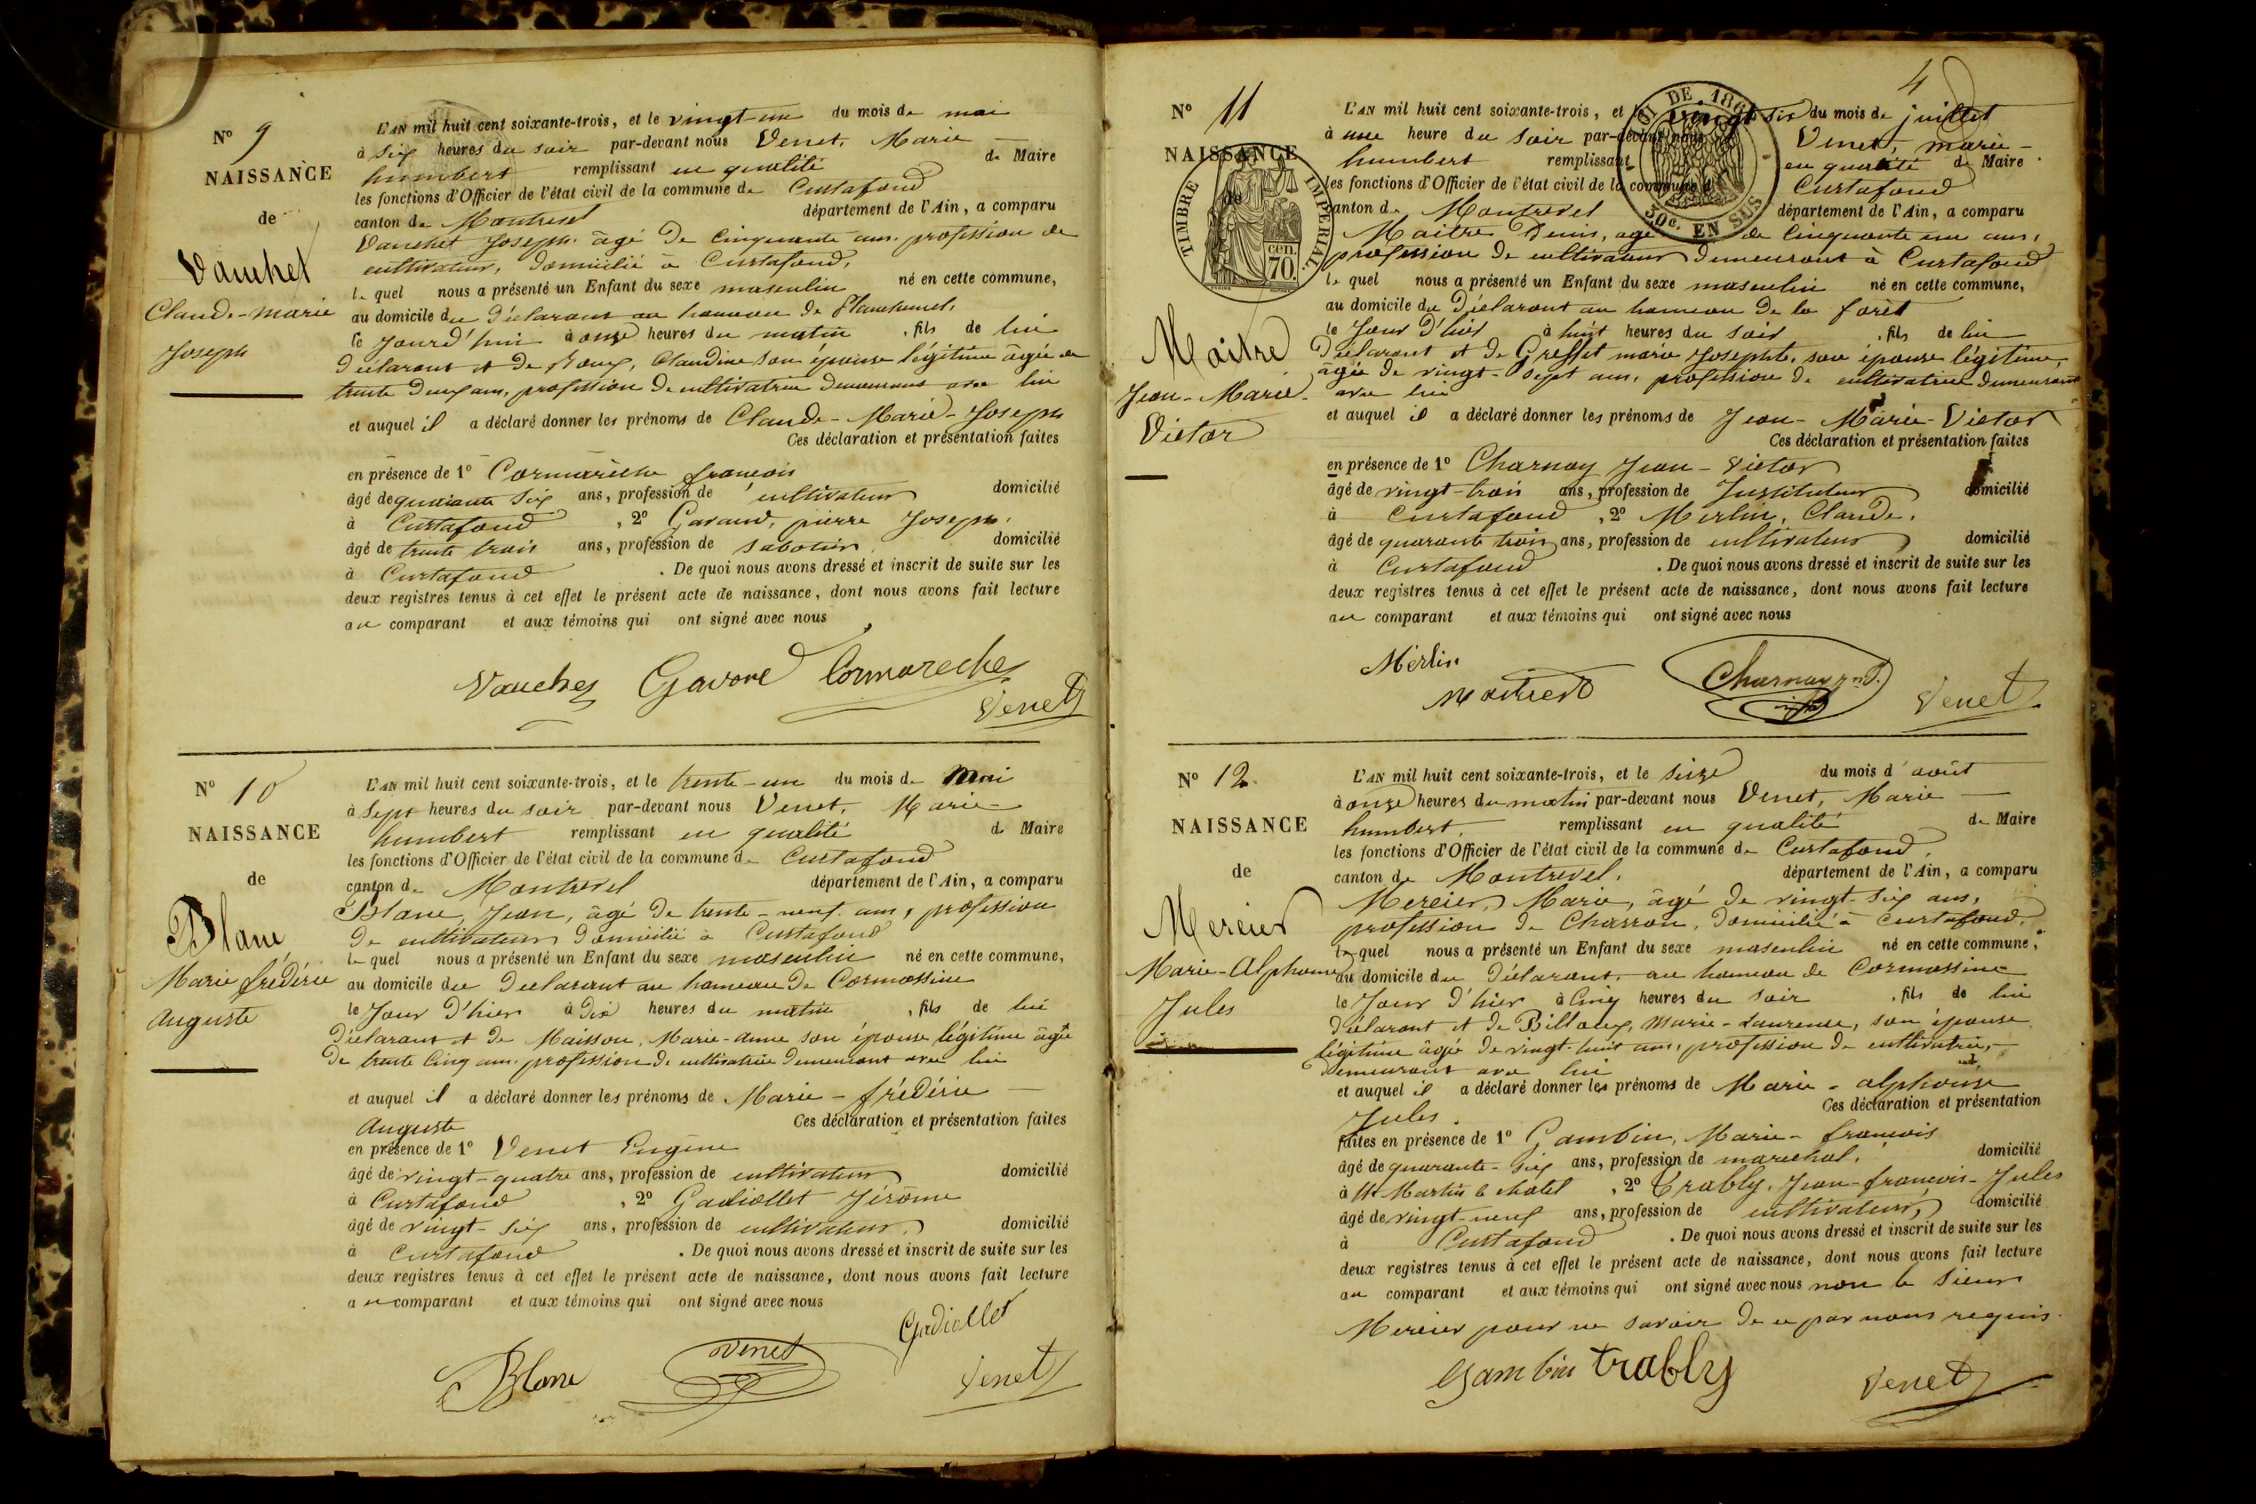 N° 9
NAISSANCE
de
Vauchet
Claude-Marie
Joseph
L'AN mil huit cent soixante-trois, et le vingt-un du mois de mai
à six heures du soir par-devant nous Venet, Marie
humbert remplissant en qualité de Maire
les fonctions d'Officier de l'état civil de la commune de Curtafond
canton de Montrevel département de l'Ain, a comparu
Vauchet Joseph âgé de cinquante ans, profession de
cultivateur, domicilié à Curtafond,
le quel nous a présenté un Enfant du sexe masculin né en cette commune,
au domicile du déclarant au hameau de
le jourd'hui à onze heures du matin, fils de lui
déclarant et de Roux, Claudine son épouse légitime âgée de
trente deux ans, profession de cultivatrice demeurant avec lui
et auquel il a déclaré donner les prénoms de Claude-Marie-Joseph
Ces déclaration et présentation faites
en présence de 1° Cormarèche françois
âgé de quarante six ans, profession de cultivateur domicilié
à Curtafond, 2° Gavand, pierre Joseph,
âgé de trente trois ans, profession de sabotier domicilié
à Curtafond. De quoi nous avons dressé et inscrit de suite sur les
deux registres tenus à cet effet le présent acte de naissance, dont nous avons fait lecture
au comparant et aux témoins qui ont signé avec nous
Vauchey Gavore Cormareche
Venet
N° 10
NAISSANCE
de
Blanc
Marie frédéric
Auguste
L'AN mil huit cent soixante-trois, et le trente-un du mois de Mai
à Sept heures du soir par-devant nous Venet, Marie-
humbert remplissant en qualité de Maire
les fonctions d'Officier de l'état civil de la commune de Curtafond
canton de Montrevel département de l'Ain, a comparu
Blanc, Jean, âgé de trente-neuf ans, profession
de cultivateur domicilié à Curtafond
le quel nous a présenté un Enfant du sexe masculin né en cette commune,
au domicile du déclarant au hameau de Cormassine
le jour d'hier à dix heures du matin, fils de lui
déclarant et de Maisson, Marie-Anne son épouse légitime âgée
de trente cinq ans, profession de cultivatrice demeurant avec lui
et auquel il a déclaré donner les prénoms de Marie-frédéric
Auguste Ces déclaration et présentation faites
en présence de 1° Venet Eugène
âgé de vingt-quatre ans, profession de cultivateur domicilié
à Curtafond, 2° Gadiollet Jérôme
âgé de vingt-six ans, profession de cultivateur, domicilié
à Curtafond. De quoi nous avons dressé et inscrit de suite sur les
deux registres tenus à cet effet le présent acte de naissance, dont nous avons fait lecture
au comparant et aux témoins qui ont signé avec nous
Gadiollet
Blanc Venet Venet
4
N° 11
NAISSANCE
de
TIMBRE IMPERIAL
70 cen.
LOI DE 186
30c. EN SUS
Maitre
Jean-Marie-
Victor
L'AN mil huit cent soixante-trois, et le vingt six du mois de juillet
à une heure du soir par-devant nous Venet, Marie-
humbert remplissant en qualité de Maire
les fonctions d'Officier de l'état civil de la commune de Curtafond
canton de Montrevel département de l'Ain, a comparu
Maitre Denis, âgé de cinquante un ans,
profession de cultivateur demeurant à Curtafond
le quel nous a présenté un Enfant du sexe masculin né en cette commune,
au domicile du déclarant au hameau de la forêt
le jour d'hier à huit heures du soir, fils de lui
déclarant et de Greffet marie Josephte, son épouse légitime,
âgée de vingt-sept ans, profession de cultivatrice demeurant
avec lui
et auquel il a déclaré donner les prénoms de Jean-Marie-Victor
Ces déclaration et présentation faites
en présence de 1° Charnay Jean-Victor
âgé de vingt-trois ans, profession de Instituteur domicilié
à Curtafond, 2° Merlin, Claude,
âgé de quarante trois ans, profession de cultivateur domicilié
à Curtafond. De quoi nous avons dressé et inscrit de suite sur les
deux registres tenus à cet effet le présent acte de naissance, dont nous avons fait lecture
au comparant et aux témoins qui ont signé avec nous
Merlin
Charnay Venet
N° 12
NAISSANCE
de
Mercier
Marie-Alphonse
Jules
L'AN mil huit cent soixante-trois, et le seize du mois d'août
à onze heures du matin par-devant nous Venet, Marie
humbert. remplissant en qualité de Maire
les fonctions d'Officier de l'état civil de la commune de Curtafond,
canton de Montrevel. département de l'Ain, a comparu
Mercier, Marie, âgé de vingt-six ans,
profession de Charron, domicilié à Curtafond,
le quel nous a présenté un Enfant du sexe masculin né en cette commune,
au domicile du déclarant, au hameau de Cormassine
le jour d'hier à cinq heures du soir, fils de lui
déclarant et de Billoux, Marie-Laurence, son épouse
légitime âgée de vingt-huit ans, profession de cultivatrice,
demeurant avec lui
et auquel il a déclaré donner les prénoms de Marie-alphonse
Jules. Ces déclaration et présentation
faites en présence de 1° Gambin, Marie-françois
âgé de quarante-six ans, profession de maréchal, domicilié
à St Martin le chatel, 2° Trably, Jean-françois-Jules
âgé de vingt-neuf ans, profession de cultivateur, domicilié
à Curtafond. De quoi nous avons dressé et inscrit de suite sur les
deux registres tenus à cet effet le présent acte de naissance, dont nous avons fait lecture
au comparant et aux témoins qui ont signé avec nous non le sieur
Mercier pour ne savoir de ce par nous requis.
Gambin trably Venet